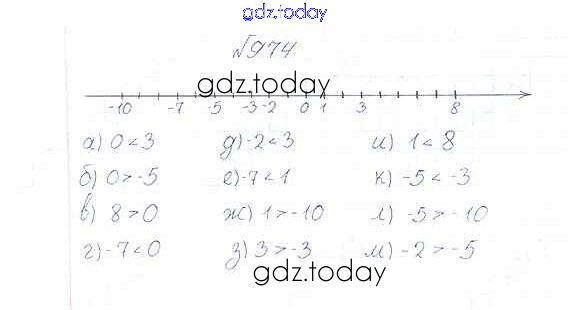 gdz.today
№974
gdz.today
-10 -7 -5 -3 -2 0 1 3 8
а) 0 < 3 д) -2 < 3 и) 1 < 8
б) 0 > -5 е) -7 < 1 к) -5 < -3
в) 8 > 0 ж) 1 > -10 л) -5 > -10
г) -7 < 0 з) 3 > -3 м) -2 > -5
gdz.today